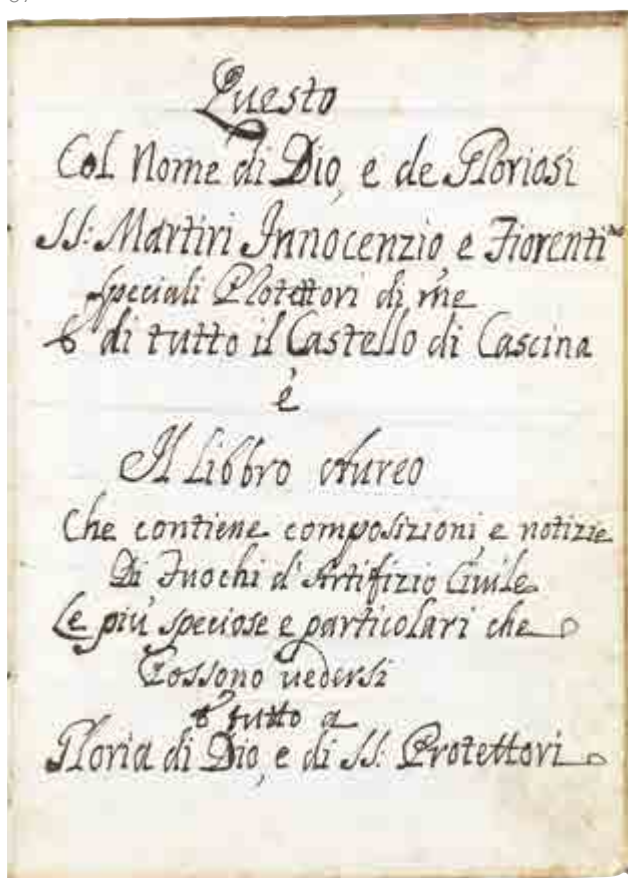 Questo
Col Nome di Dio, e de Gloriosi
SS: Martiri Innocenzio e Fiorenti^no
speciali Protettori di me
e di tutto il Castello di Cascina
è
Il Libbro Aureo
Che contiene composizioni e notizie
Di Fuochi d'Artifizio Civile
Le più speciose e particolari che
Possono uedersi
e tutto a
Gloria di Dio, e di SS: Protettori